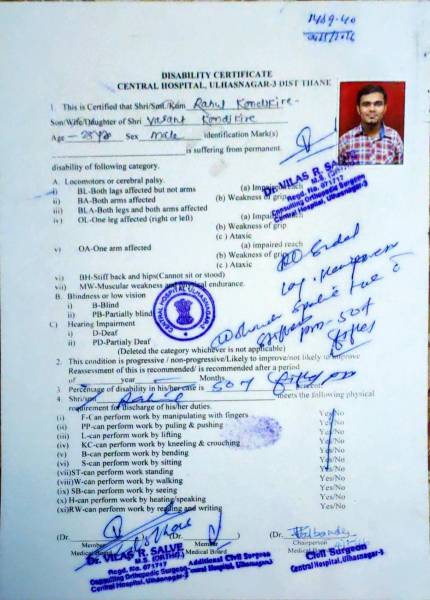 DISABILITY CERTIFICATE
CENTRAL HOSPITAL, ULHASNAGAR-3 DIST THANE
1. This is Certified that Shri/Smt./Kum Rahul Kondkire
Son/Wife/Daughter of Shri Vasant Kondkire
Age Sex Male identification Mark(s)
is suffering from permanent
disability of following category.
A. Locomotors or cerebral palsy.
i) BL-Both lags affected but not arms (a) Impaired reach
ii) BA-Both arms affected (b) Weakness of grip
iii) BLA-Both legs and both arms affected (c)
iv) OL-One leg affected (right or left) (a) Impaired
(b) Weakness of grip
(c) Ataxic
v) OA-One arm affected (a) impaired reach
(b) Weakness of grip
(c) Ataxic
vi) BH-Stiff back and hips(Cannot sit or stood)
vii) MW-Muscular weakness endurance.
B. Blindness or low vision
i) B-Blind
ii) PB-Partially blind
C) Hearing Impairment
i) D-Deaf
ii) PD-Partially Deaf
(Deleted the category whichever is not applicable)
2. This condition is progressive / non-progressive/Likely to improve/not likely to improve
Reassessment of this is recommended/ is recommended after a period
of year Months
3. Percentage of disability in his/her case is 50% percent
4. Shri/Smt Rahul meets the following physical
requirement for discharge of his/her duties.
(i) F-Can perform work by manipulating with fingers Yes/No
(ii) PP-can perform work by puling & pushing Yes/No
(iii) L-can perform work by lifting Yes/No
(iv) KC-can perform work by kneeling & crouching Yes/No
(v) B-can perform work by bending Yes/No
(vi) S-can perform work by sitting Yes/No
(vii)ST-can perform work standing Yes/No
(viii)W-can perform work by walking Yes/No
(ix) SB-can perform work by seeing Yes/No
(x) H-can perform work by hearing/speaking Yes/No
(xi)RW-can perform work by reading and writing Yes/No
(Dr. (Dr. (Dr.
Member Member Chairperson
Medical Board Medical Board
Dr. VILAS R. SALVE
M.S. (ORTHO)
Regd. No. 071717
Consulting Orthopedic Surgeon
Central Hospital, Ulhasnagar-3
Dr. VILAS R. SALVE
M.S. (ORTHO)
Regd. No. 071717
Consulting Orthopedic Surgeon
Central Hospital, Ulhasnagar-3
Additional Civil Surgeon
Central Hospital, Ulhasnagar-3
Civil Surgeon
Central Hospital, Ulhasnagar-3
CENTRAL HOSPITAL ULHASNAGAR-3